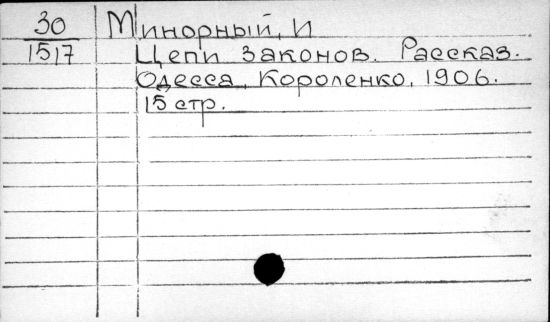 30 Минорный, И
1517 Цепи законов. Рассказ.
Одесса, Короленко, 1906.
15 стр.